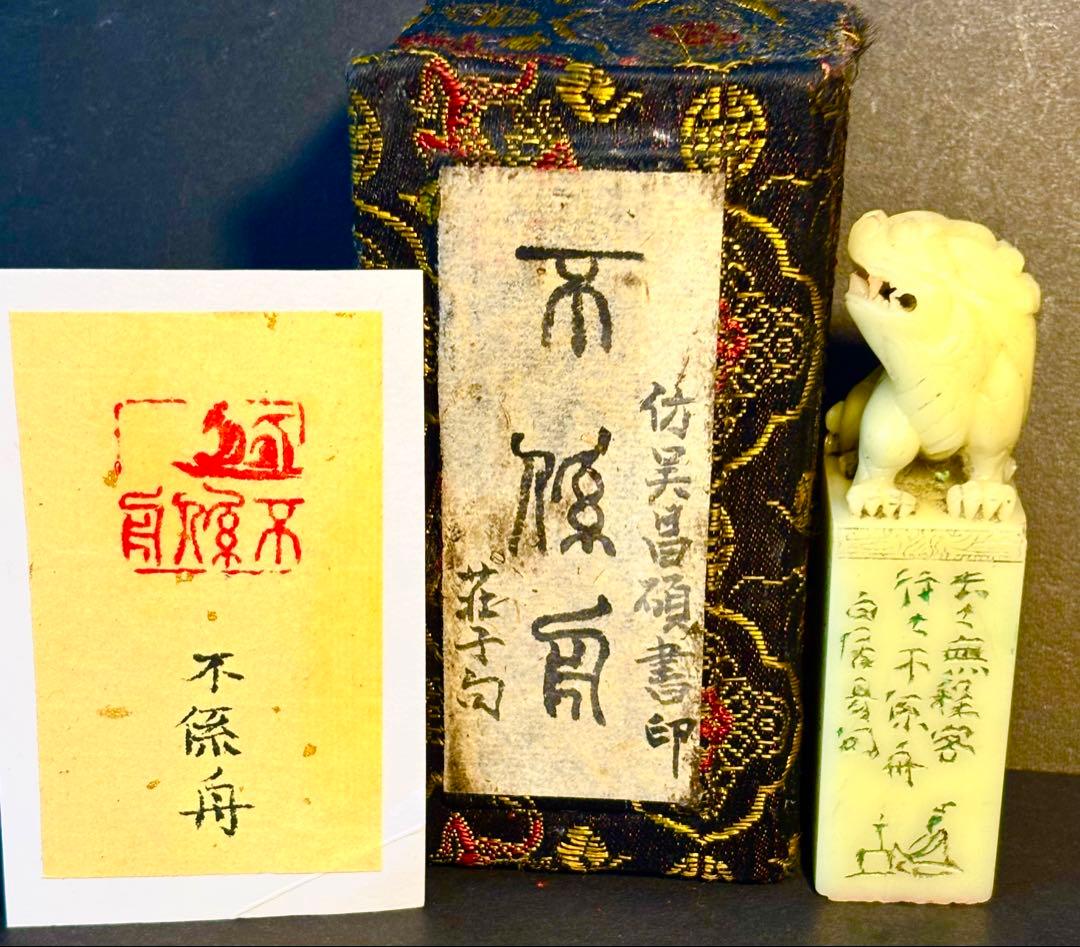 不係舟
不係舟
仿吴昌碩書印
不係舟
莊子句
去々無程客
行々不係舟
白居易句